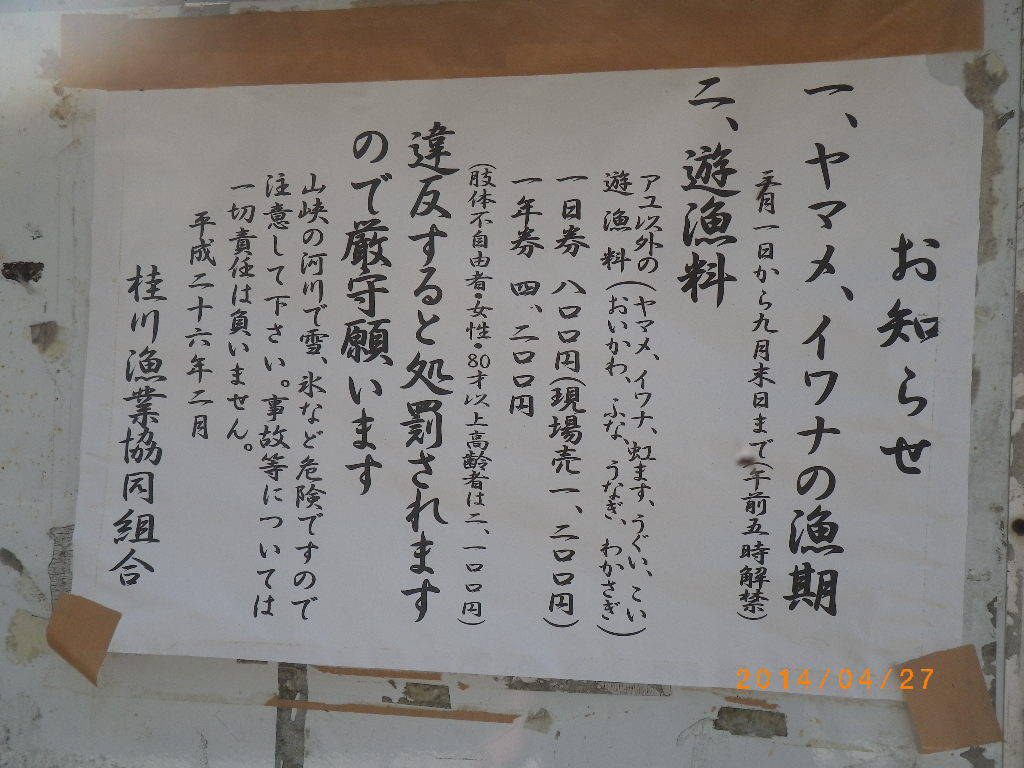 お知らせ
一、ヤマメ、イワナの漁期
三月一日から九月末日まで(午前五時解禁)
二、遊漁料
アユ以外の(ヤマメ、イワナ、虹ます、うぐい、こい
遊漁料(おいかわ、ふな、うなぎ、わかさぎ)
一日券 八〇〇円(現場売一、二〇〇円)
一年券 四、二〇〇円
(肢体不自由者・女性・80才以上高齢者は二、一〇〇円)
違反すると処罰されます
ので厳守願います
山峡の河川で雪、氷など危険ですので
注意して下さい。事故等については
一切責任は負いません。
平成二十六年二月
桂川漁業協同組合
2014/04/27